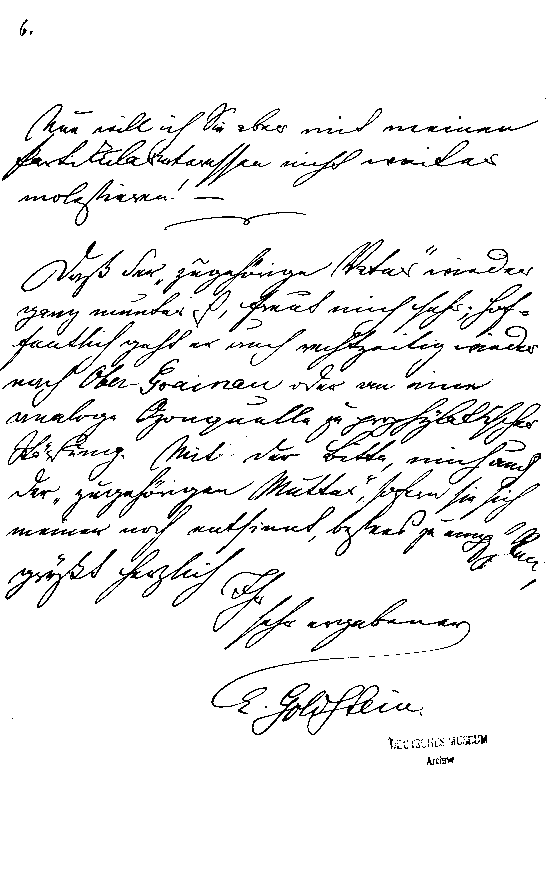 6.
Nun will ich Sie aber mit meinen
Partikularinteressen nicht weiter
molestieren! —
Daß der „zugehörige Vater“ wieder
ganz munter ist, freut mich sehr; hof-
fentlich geht er auch rechtzeitig wieder
nach Ober-Grainau oder an eine
analoge Ozonquelle zu prophylaktischer
Stärkung. Mit der Bitte, mich auch
der „zugehörigen Mutter“, sofern sie sich
meiner noch entsinnt, bestens zu
grüßt herzlich
Ihr
sehr ergebener
E. Goldstein.
DEUTSCHES MUSEUM
Archiv